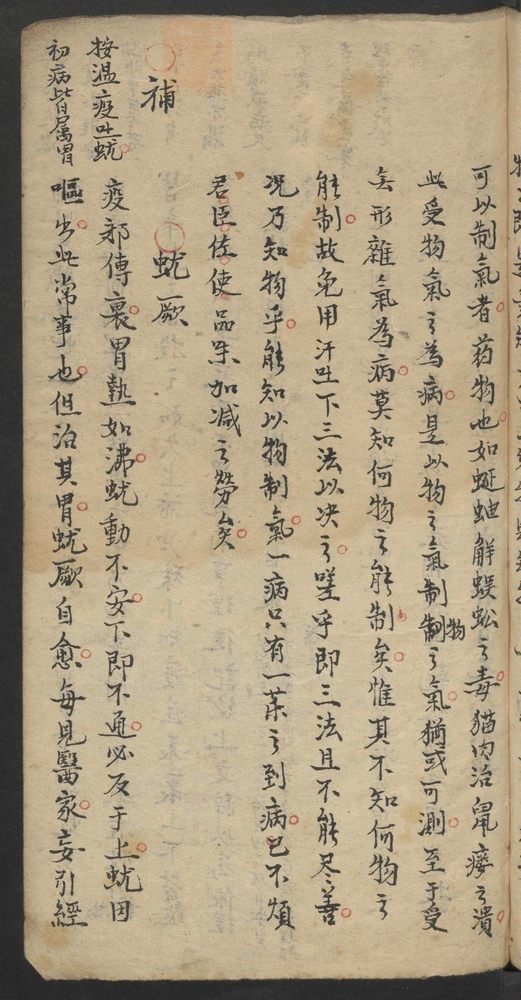 可以制氣者药物也如蜒蚰觧蜈蚣之毒猫肉治䑕瘻之潰
此受物氣之為病是以物之氣制物之氣猶或可測至于受
無形雜氣為病莫知何物之能制矣惟其不知何物之
能制故免用汗吐下三法以决之嗟乎即三法且不能尽善
况乃知物乎能知以物制氣一病只有一薬之到病已不煩
君臣佐使品味加减之勞矣
○蚘厥
疫邪傳裏胃熱如沸蚘動不安下即不通必反于上蚘因
嘔出此常事也但治其胃蚘厥自愈每見醫家妄引經
○補
按温疫吐蚘
初病皆属胃